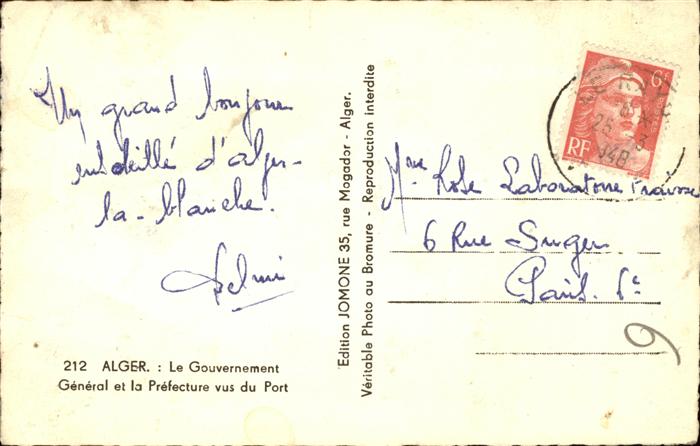 Un grand bonjour
ensoleillé d'alger-
la-blanche.
212 ALGER. : Le Gouvernement
Général et la Préfecture vus du Port
Edition JOMONE 35, rue Mogador - Alger.
Véritable Photo au Bromure - Reproduction interdite
6F
RF
25
948
Mme Rose Laboratoire
6 Rue Suger
Paris. 6e
6